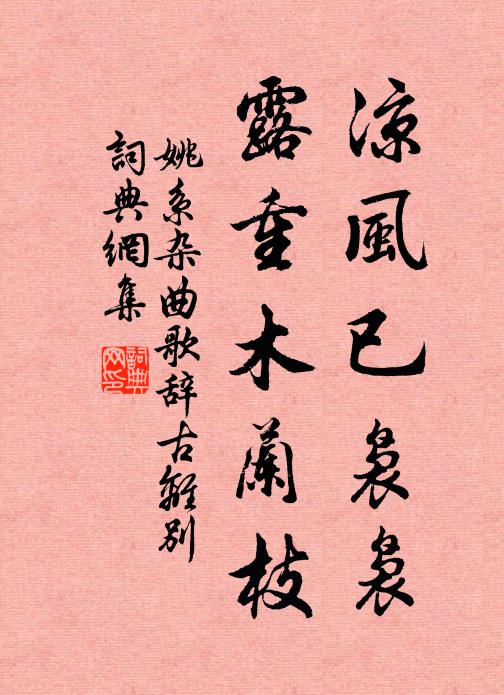 凉風已裊裊
露重木蘭枝
姚系杂曲歌辞古離別
詞典網集
詞典網印